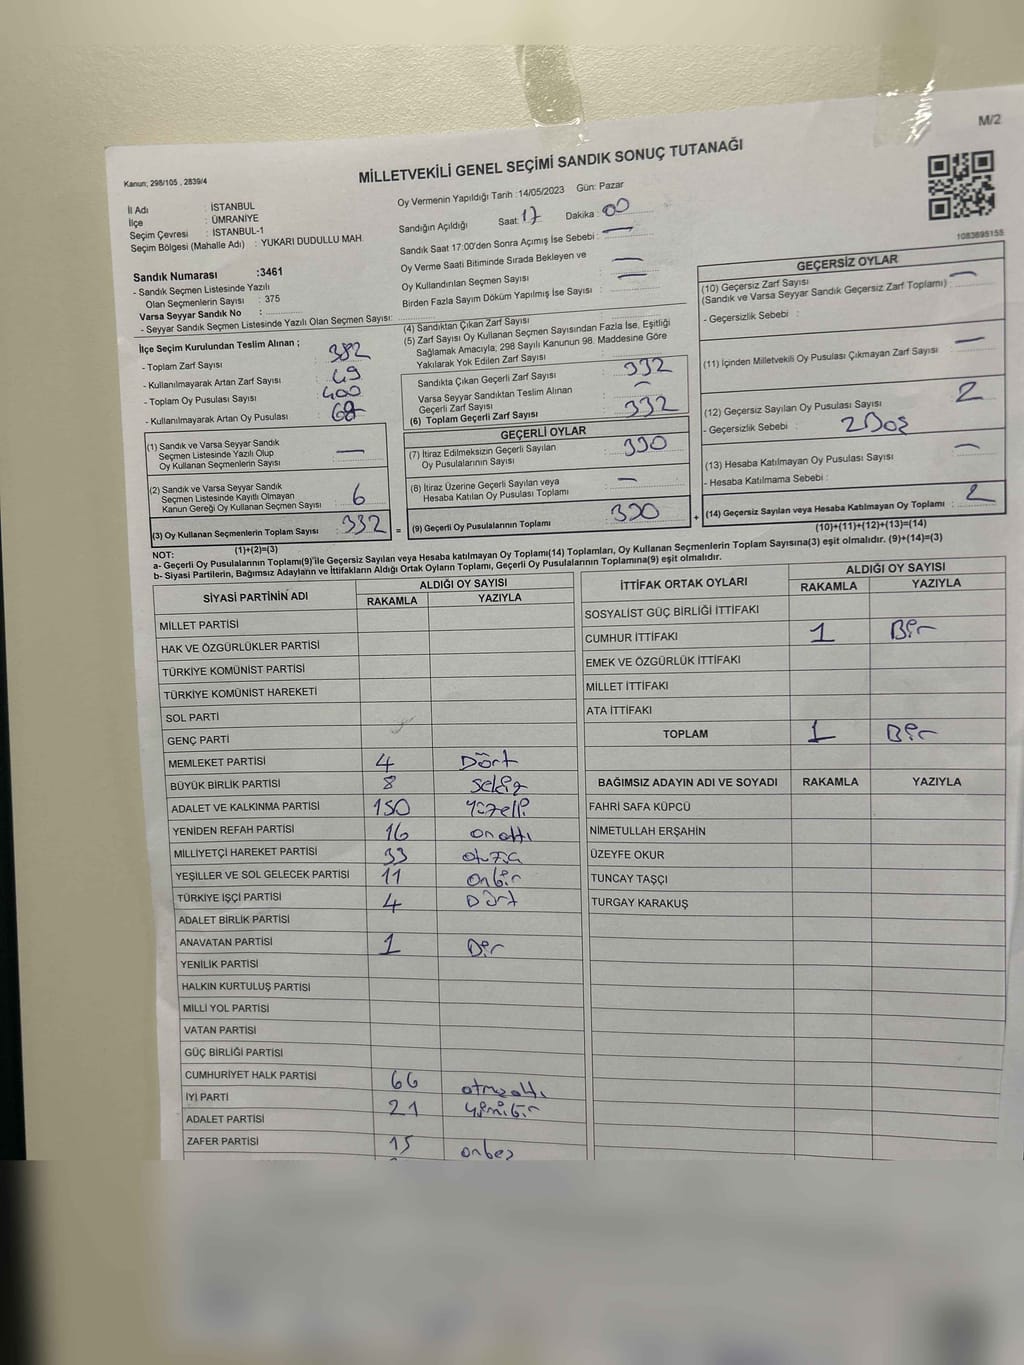 M/2
Kanun; 298/105 , 2839/4
MİLLETVEKİLİ GENEL SEÇİMİ SANDIK SONUÇ TUTANAĞI
1083895155
İl Adı : İSTANBUL
İlçe : ÜMRANİYE
Seçim Çevresi : İSTANBUL-1
Seçim Bölgesi (Mahalle Adı) : YUKARI DUDULLU MAH.
Sandık Numarası :3461
- Sandık Seçmen Listesinde Yazılı
Olan Seçmenlerin Sayısı : 375
Varsa Seyyar Sandık No :
- Seyyar Sandık Seçmen Listesinde Yazılı Olan Seçmen Sayısı:
Oy Vermenin Yapıldığı Tarih :14/05/2023 Gün: Pazar
Sandığın Açıldığı Saat: 17 Dakika : 00
Sandık Saat 17:00'den Sonra Açımış İse Sebebi : —
Oy Verme Saati Bitiminde Sırada Bekleyen ve
Oy Kullandırılan Seçmen Sayısı : —
Birden Fazla Sayım Döküm Yapılmış İse Sayısı : —
İlçe Seçim Kurulundan Teslim Alınan ;
- Toplam Zarf Sayısı : 382
- Kullanılmayarak Artan Zarf Sayısı : 49
- Toplam Oy Pusulası Sayısı : 400
- Kullanılmayarak Artan Oy Pusulası :
(1) Sandık ve Varsa Seyyar Sandık
Seçmen Listesinde Yazılı Olup
Oy Kullanan Seçmenlerin Sayısı : —
(2) Sandık ve Varsa Seyyar Sandık
Seçmen Listesinde Kayıtlı Olmayan
Kanun Gereği Oy Kullanan Seçmen Sayısı : 6
(3) Oy Kullanan Seçmenlerin Toplam Sayısı : 332 =
(1)+(2)=(3)
(4) Sandıktan Çıkan Zarf Sayısı :
(5) Zarf Sayısı Oy Kullanan Seçmen Sayısından Fazla İse, Eşitliği
Sağlamak Amacıyla, 298 Sayılı Kanunun 98. Maddesine Göre
Yakılarak Yok Edilen Zarf Sayısı :
Sandıkta Çıkan Geçerli Zarf Sayısı : 332
Varsa Seyyar Sandıktan Teslim Alınan
Geçerli Zarf Sayısı : —
(6) Toplam Geçerli Zarf Sayısı : 332
GEÇERLİ OYLAR
(7) İtiraz Edilmeksizin Geçerli Sayılan
Oy Pusulalarının Sayısı : 330
(8) İtiraz Üzerine Geçerli Sayılan veya
Hesaba Katılan Oy Pusulası Toplamı : —
(9) Geçerli Oy Pusulalarının Toplamı : 330 +
GEÇERSİZ OYLAR
(10) Geçersiz Zarf Sayısı : —
(Sandık ve Varsa Seyyar Sandık Geçersiz Zarf Toplamı)
- Geçersizlik Sebebi :
(11) İçinden Milletvekili Oy Pusulası Çıkmayan Zarf Sayısı : —
(12) Geçersiz Sayılan Oy Pusulası Sayısı : 2
- Geçersizlik Sebebi : 2 Boş
(13) Hesaba Katılmayan Oy Pusulası Sayısı : —
- Hesaba Katılmama Sebebi :
(14) Geçersiz Sayılan veya Hesaba Katılmayan Oy Toplamı : 2
(10)+(11)+(12)+(13)=(14)
NOT:
a- Geçerli Oy Pusulalarının Toplamı(9)'ile Geçersiz Sayılan veya Hesaba katılmayan Oy Toplamı(14) Toplamları, Oy Kullanan Seçmenlerin Toplam Sayısına(3) eşit olmalıdır. (9)+(14)=(3)
b- Siyasi Partilerin, Bağımsız Adayların ve İttifakların Aldığı Ortak Oyların Toplamı, Geçerli Oy Pusulalarının Toplamına(9) eşit olmalıdır.
SİYASİ PARTİNİN ADI ALDIĞI OY SAYISI
RAKAMLA YAZIYLA
MİLLET PARTİSİ
HAK VE ÖZGÜRLÜKLER PARTİSİ
TÜRKİYE KOMÜNİST PARTİSİ
TÜRKİYE KOMÜNİST HAREKETİ
SOL PARTİ
GENÇ PARTİ
MEMLEKET PARTİSİ 4 Dört
BÜYÜK BİRLİK PARTİSİ 8 Sekiz
ADALET VE KALKINMA PARTİSİ 150 Yüzelli
YENİDEN REFAH PARTİSİ 16 onaltı
MİLLİYETÇİ HAREKET PARTİSİ 33
YEŞİLLER VE SOL GELECEK PARTİSİ 11 Onbir
TÜRKİYE İŞÇİ PARTİSİ 4 Dört
ADALET BİRLİK PARTİSİ
ANAVATAN PARTİSİ 1 Bir
YENİLİK PARTİSİ
HALKIN KURTULUŞ PARTİSİ
MİLLİ YOL PARTİSİ
VATAN PARTİSİ
GÜÇ BİRLİĞİ PARTİSİ
CUMHURİYET HALK PARTİSİ 66 atmışaltı
İYİ PARTİ 21 yirmibir
ADALET PARTİSİ
ZAFER PARTİSİ 15 onbeş
İTTİFAK ORTAK OYLARI ALDIĞI OY SAYISI
RAKAMLA YAZIYLA
SOSYALİST GÜÇ BİRLİĞİ İTTİFAKI
CUMHUR İTTİFAKI 1 Bir
EMEK VE ÖZGÜRLÜK İTTİFAKI
MİLLET İTTİFAKI
ATA İTTİFAKI
TOPLAM 1 Bir
BAĞIMSIZ ADAYIN ADI VE SOYADI RAKAMLA YAZIYLA
FAHRİ SAFA KÜPCÜ
NİMETULLAH ERŞAHİN
ÜZEYFE OKUR
TUNCAY TAŞÇI
TURGAY KARAKUŞ